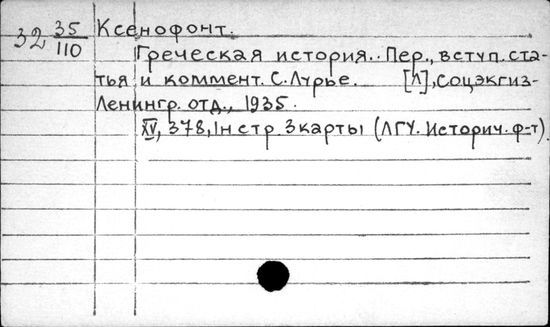 32 35/110 Ксенофонт.
Греческая история.. Пер., вступ. ста-
тья и коммент. С. Лурье. [Л], Соцэкгиз-
Ленингр. отд., 1935.
XV, 378, Iн стр. 3 карты (ЛГУ. Историч. ф-т).